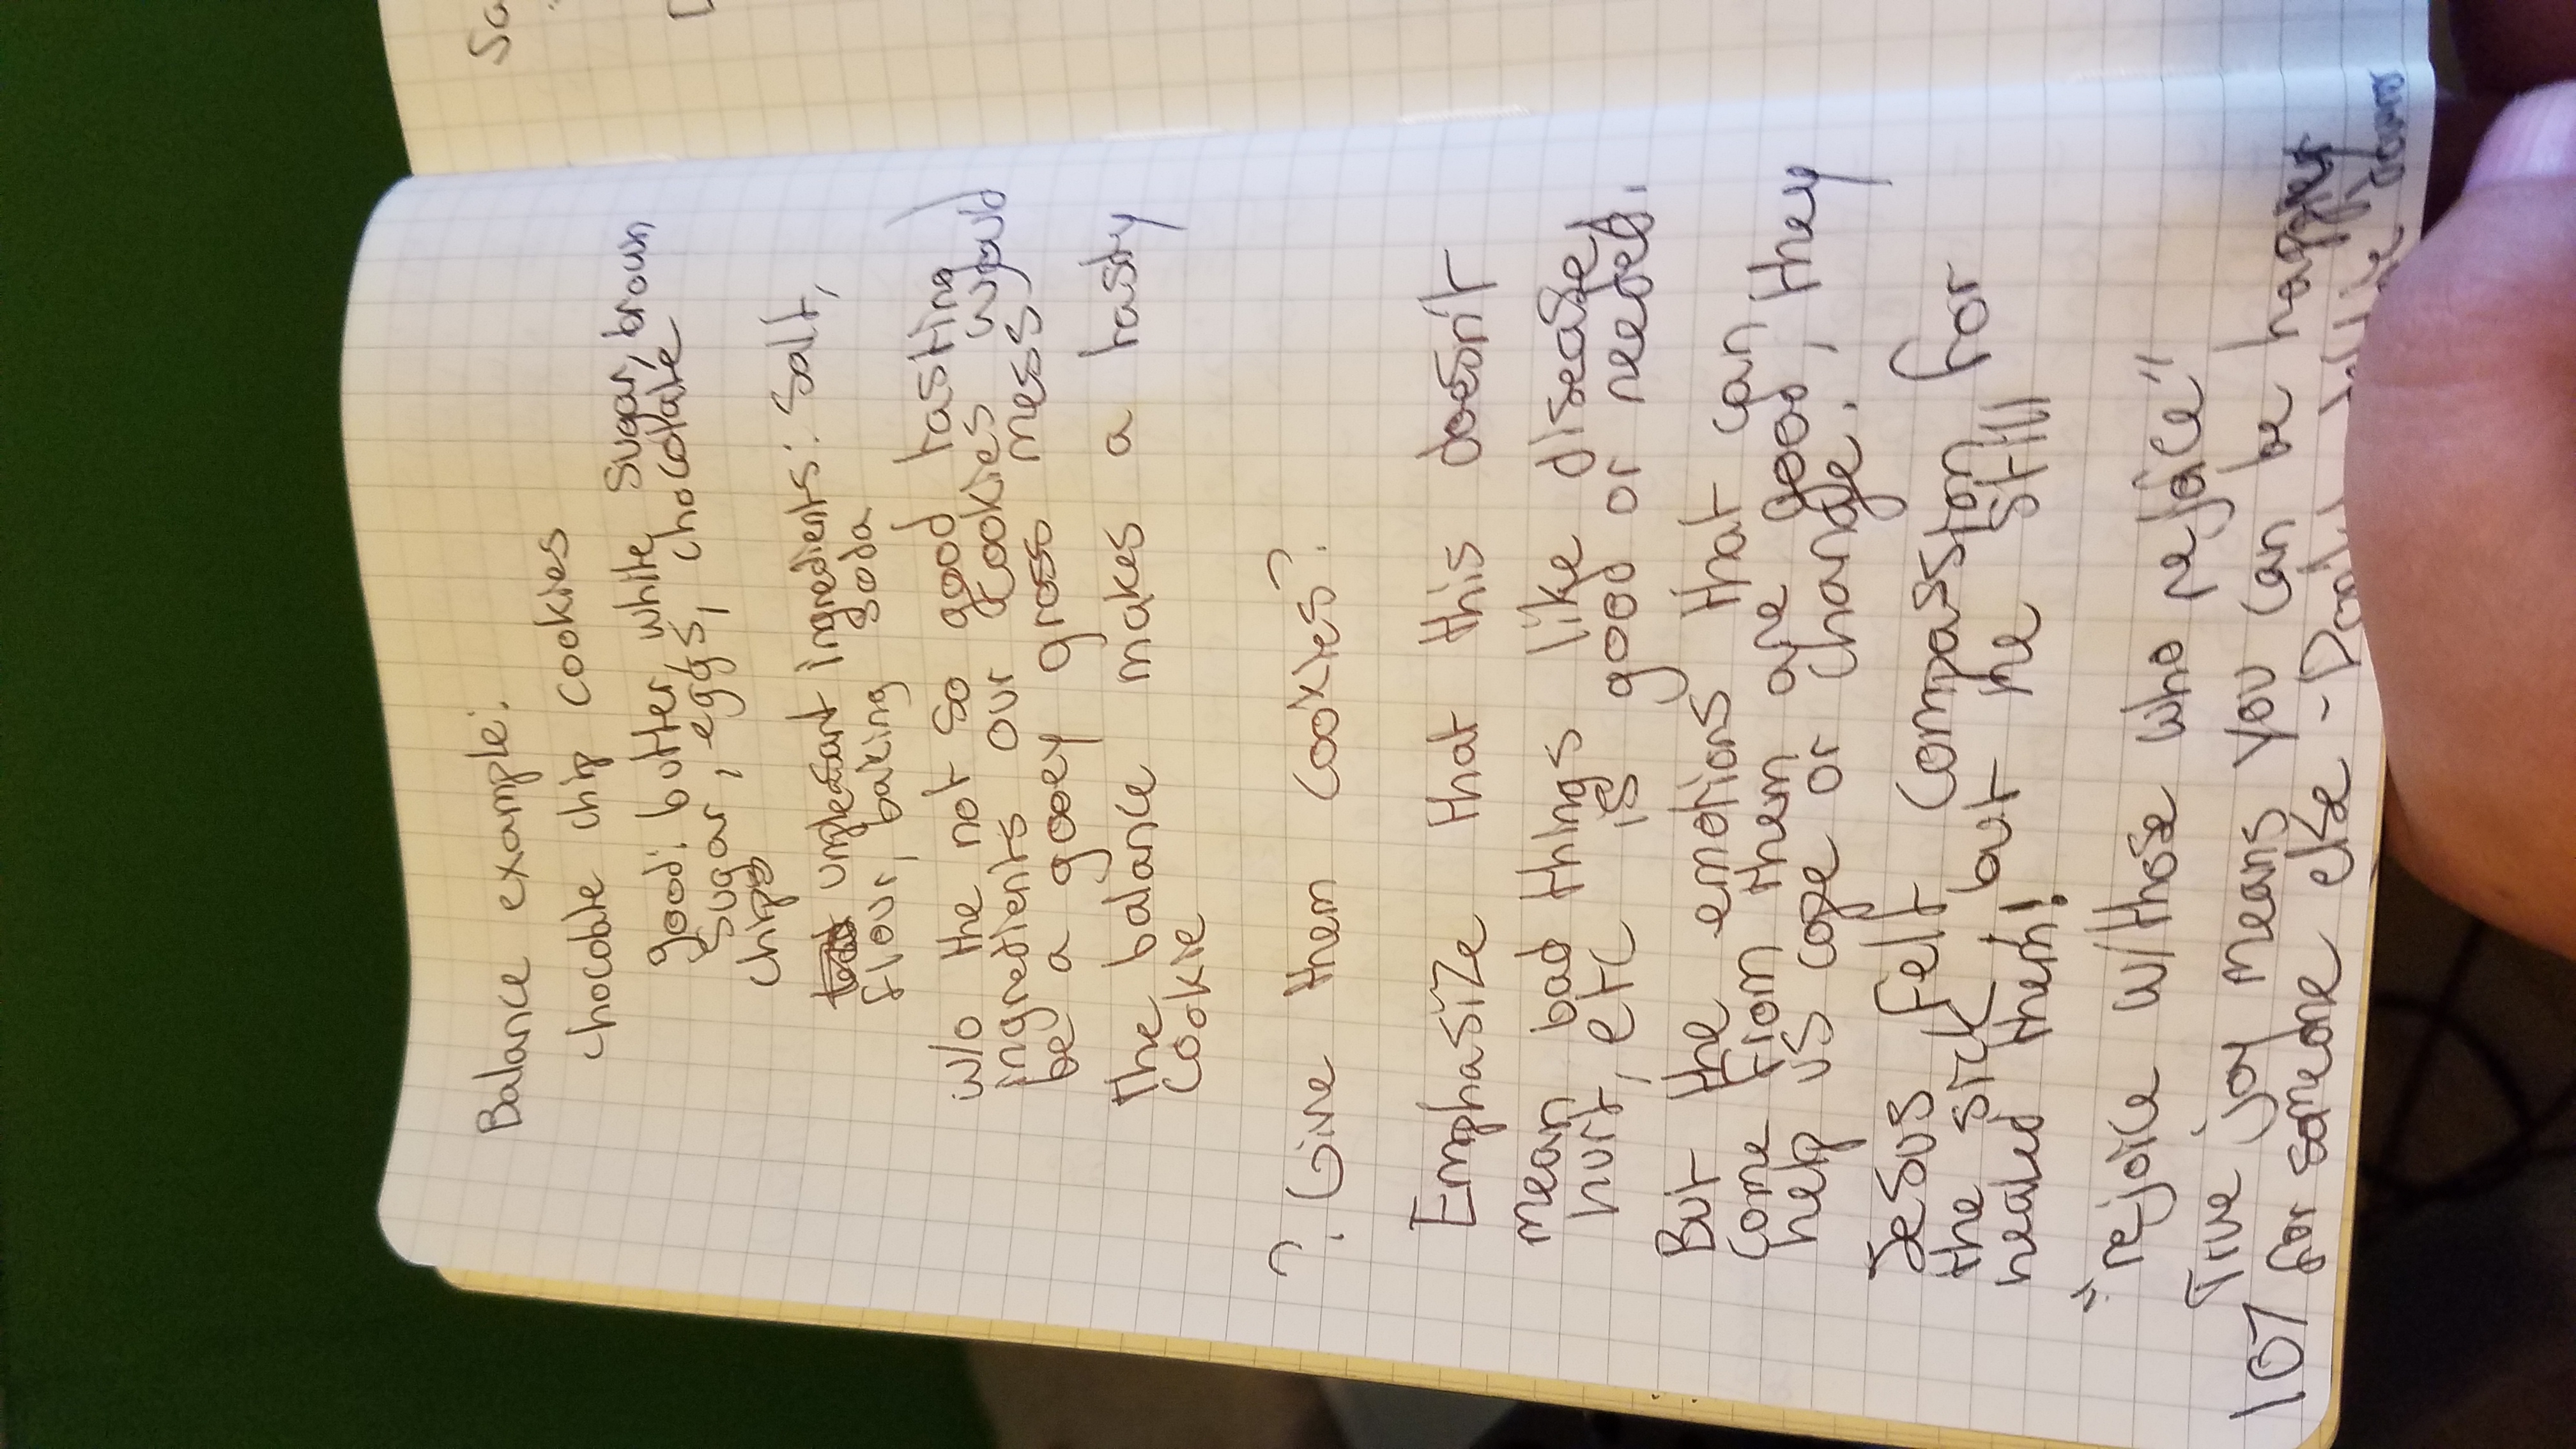 Balance example:
chocolate chip cookies
good: butter, white sugar, brown
sugar, eggs, chocolate
chips
unpleasant ingredients: salt,
flour, baking soda
w/o the not so good tasting
ingredients our cookies would
be a gooey gross mess
The balance makes a tasty
cookie
?. Give them cookies?.
Emphasize that this doesn't
mean bad things like disease,
hurt, etc is good or needed.
But the emotions that can
come from them are good, they
help us cope or change.
Jesus felt compassion for
the sick but he still
healed them!
"rejoice w/ those who rejoice"
True joy means you can be happy
for someone else -
107
So